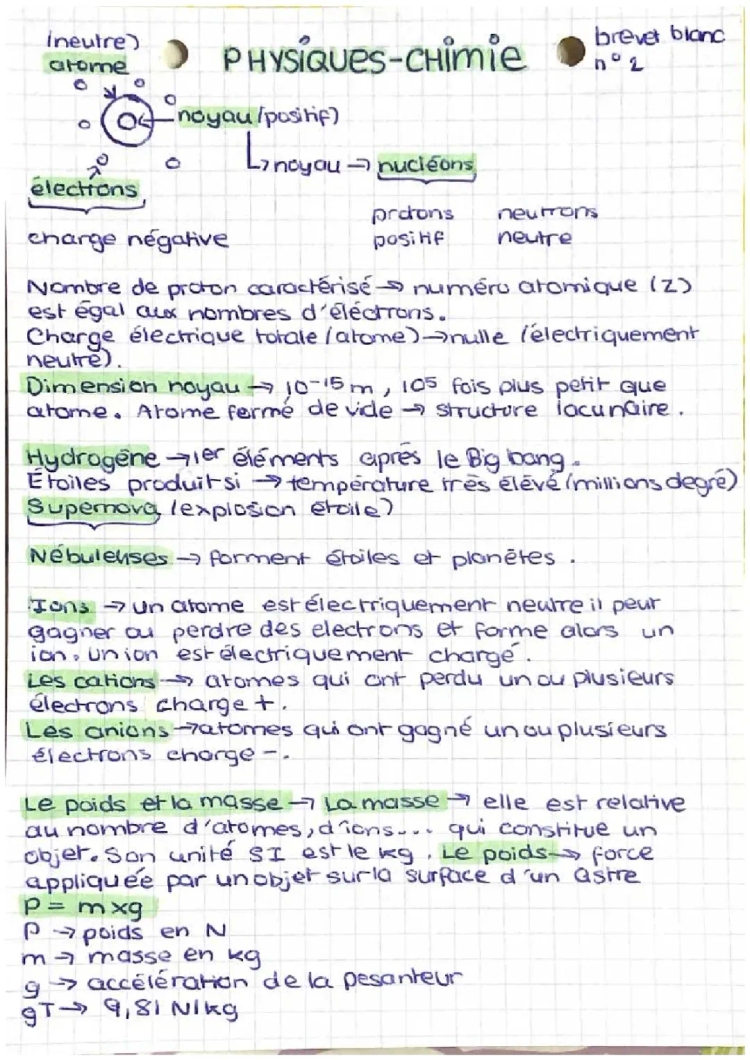 (neutre)
atome
PHYSIQUES-CHIMIE
brevet blanc
n° 2
noyau (positif)
↳ noyau → nucléons
électrons
protons neutrons
charge négative
positif neutre
Nombre de proton caractérisé → numéro atomique (Z)
est égal aux nombres d'éléctrons.
Charge électrique totale (atome) → nulle (électriquement
neutre).
Dimension noyau → 10-15 m, 105 fois plus petit que
atome. Atome fermé de vide → structure lacunaire.
Hydrogène → 1er éléments après le Big bang.
Étoiles produit si → température très élévé (millions degré)
Supernova (explosion étoile)
Nébuleuses → forment étoiles et planètes.
Ions → un atome est électriquement neutre il peut
gagner ou perdre des electrons et forme alors un
ion. un ion est électriquement chargé.
Les cations → atomes qui ont perdu un ou plusieurs
électrons charge +.
Les anions → atomes qui ont gagné un ou plusieurs
électrons charge -.
Le poids et la masse → La masse → elle est relative
au nombre d'atomes, d'ions... qui constitue un
objet. Son unité SI est le kg. Le poids → force
appliquée par un objet sur la surface d'un astre
P = m x g
P → poids en N
m → masse en kg
g → accélération de la pesanteur
gT → 9,81 N/kg